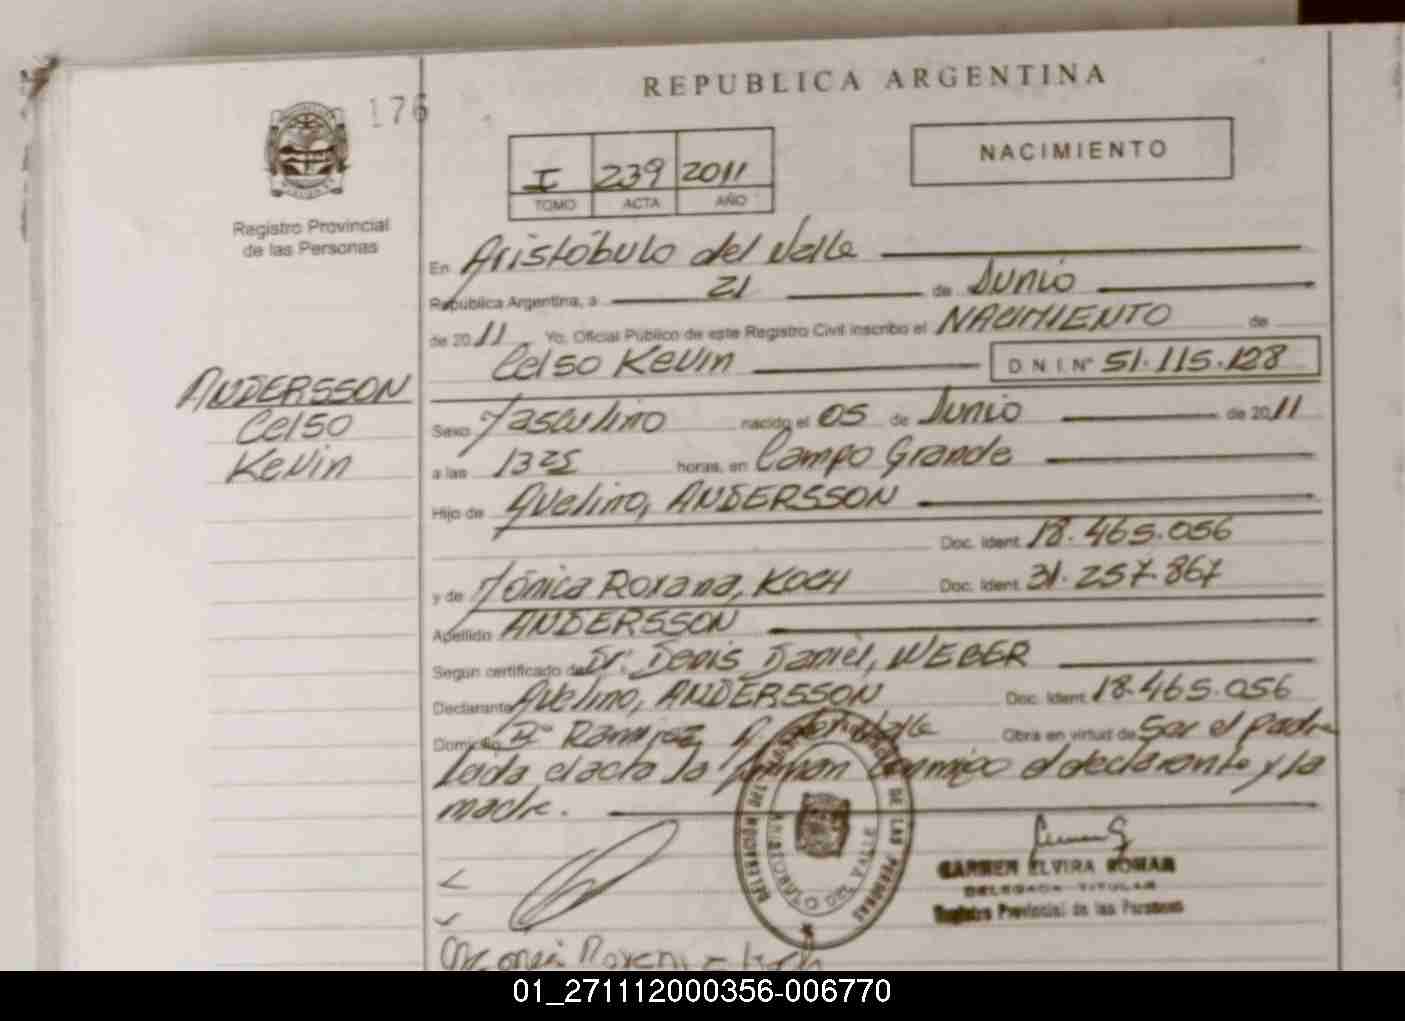 176
REPUBLICA ARGENTINA
NACIMIENTO
I 239 2011
TOMO ACTA AÑO
Registro Provincial
de las Personas
En Aristóbulo del Valle
República Argentina, a 21 de Junio
de 2011 Yo, Oficial Público de este Registro Civil inscribo el NACIMIENTO de
Celso Kevin D N I. Nº 51.115.128
ANDERSSON
Celso
Kevin
Sexo Masculino nacido el 05 de Junio de 2011
a las 1325 horas, en Campo Grande
Hijo de Avelino, ANDERSSON
Doc. Ident. 18.465.056
y de Mónica Roxana, KOCH Doc. Ident. 31.257.867
Apellido ANDERSSON
Según certificado de Dr. Denis Daniel, WEBER
Declarante Avelino, ANDERSSON Doc. Ident. 18.465.056
Domicilio Bº Ramirez, A. del Valle Obra en virtud de Ser el padre
Leida el acta la firman conmigo el declarante y la
madre.
CARMEN ELVIRA ROMAN
DELEGADA TITULAR
Registro Provincial de las Personas
DE LAS PERSONAS
ARISTOBULO DEL VALLE
01_271112000356-006770